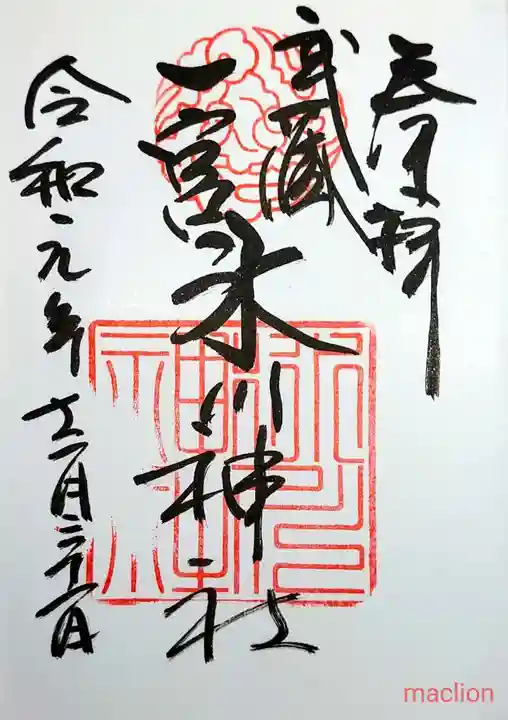 奉拝
武蔵
一宮
氷川神社
令和元年十二月三十一日
氷川神社
maclion